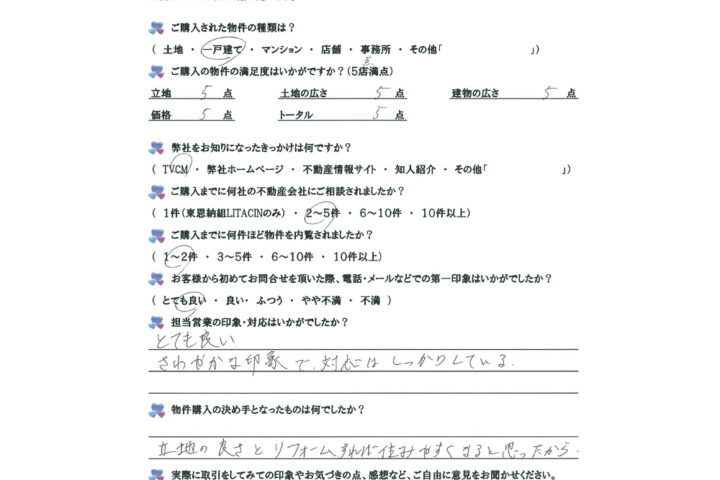 ご購入された物件の種類は？
（ 土地 ・ 一戸建て ・ マンション ・ 店舗 ・ 事務所 ・ その他「　　　　　　　　」）
ご購入の物件の満足度はいかがですか？（5店満点）
点
立地 5 点　土地の広さ 5 点　建物の広さ 5 点
価格 5 点　トータル 5 点
弊社をお知りになったきっかけは何ですか？
（ TVCM ・ 弊社ホームページ ・ 不動産情報サイト ・ 知人紹介 ・ その他「　　　　　　　」）
ご購入までに何社の不動産会社にご相談されましたか？
（ 1件（東恩納組LITACINのみ） ・ 2～5件 ・ 6～10件 ・ 10件以上）
ご購入までに何件ほど物件を内覧されましたか？
（ 1～2件 ・ 3～5件 ・ 6～10件 ・ 10件以上）
お客様から初めてお問合せを頂いた際、電話・メールなどでの第一印象はいかがでしたか？
（ とても良い ・ 良い・ ふつう ・ やや不満 ・ 不満 ）
担当営業の印象・対応はいかがでしたか？
とても良い
さわやかな印象で、対応はしっかりしている。
物件購入の決め手となったものは何でしたか？
立地の良さとリフォームすれば住みやすくなると思ったから。
実際に取引をしてみての印象やお気づきの点、感想など、ご自由に意見をお聞かせください。